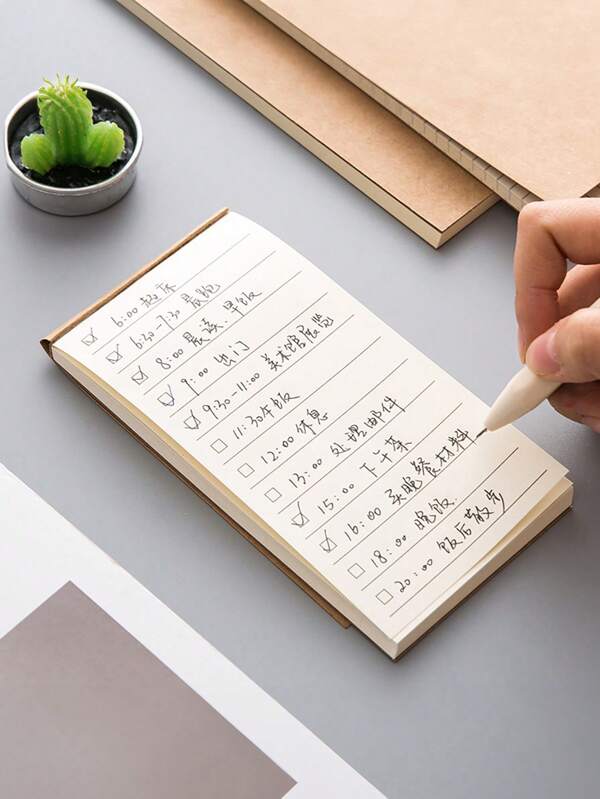 6:00 起床
6:30-7:30 晨跑
8:00 晨读、早饭
9:00 出门
9:30-11:00 美术馆展览
11:30 午饭
12:00 休息
13:00 处理邮件
15:00 下午茶
16:00 买晚餐材料
18:00 晚饭.
20:00 饭后散步